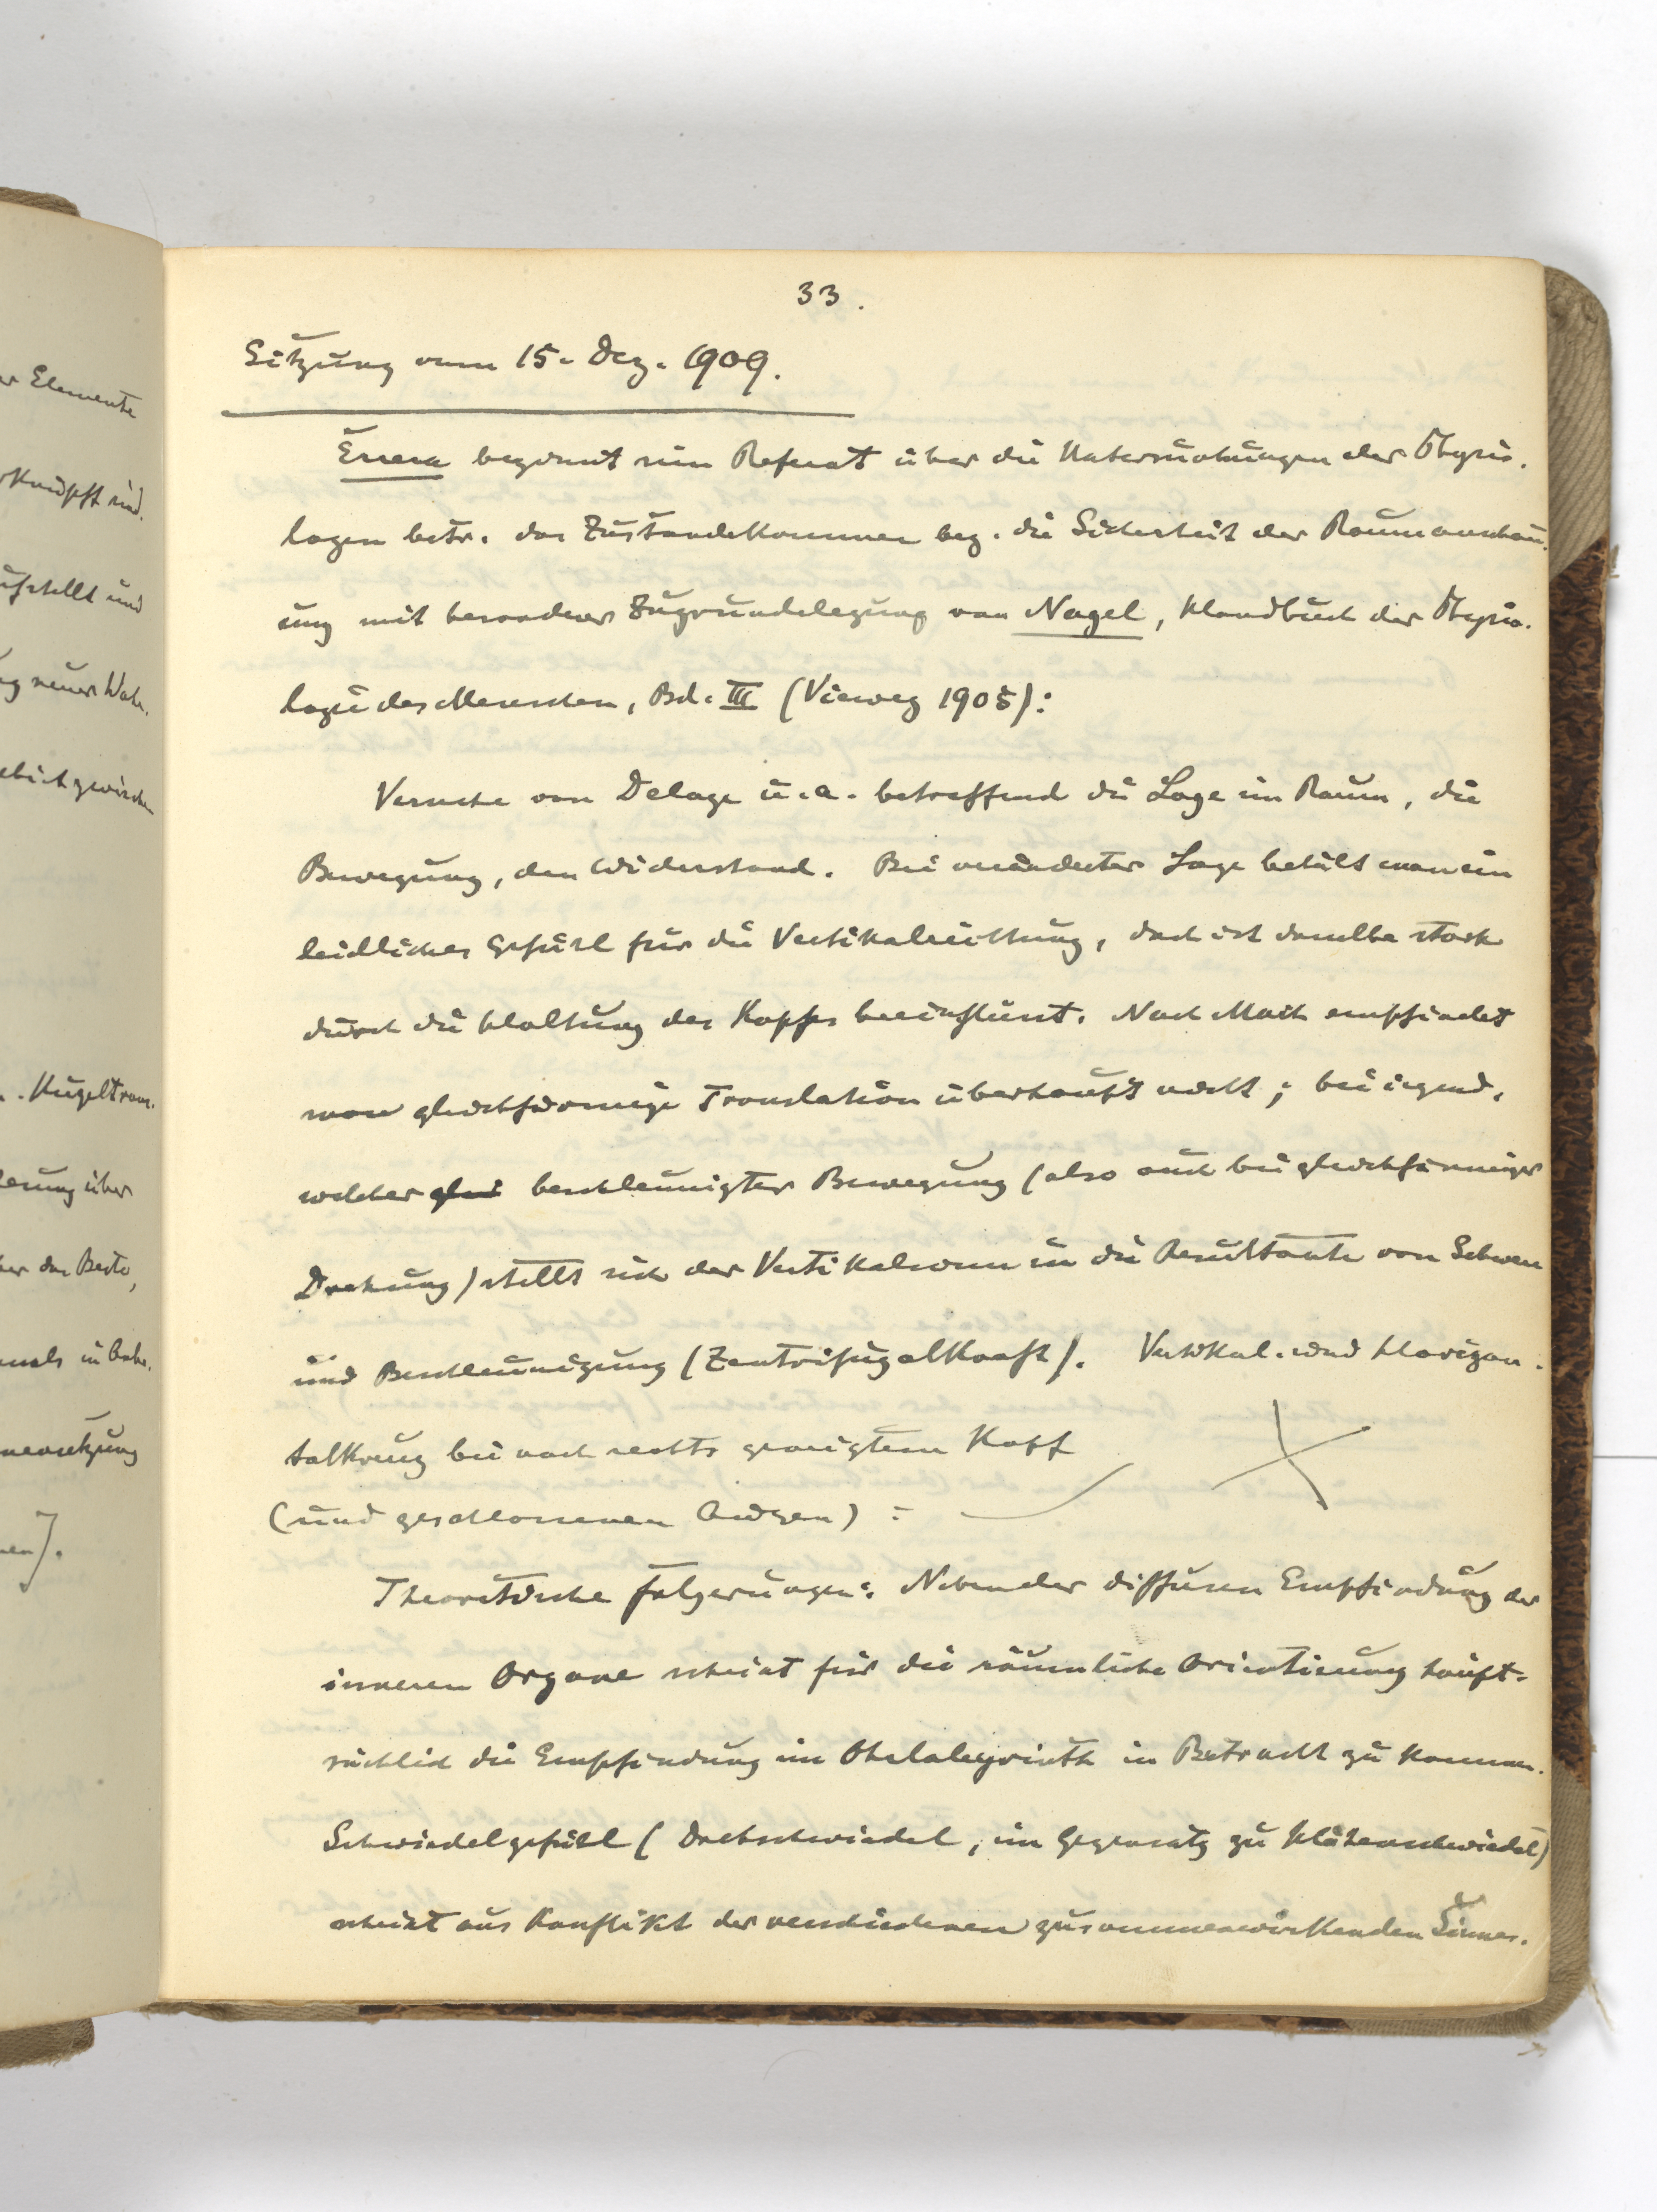 33.
Sitzung vom 15. Dez. 1909.
Errera beginnt sein Referat über die Untersuchungen der Physio-
logen betr. das Zustandekommen bez. die Sicherheit der Raumanschau-
ung mit besonderer Zugrundelegung von Nagel, Handbuch der Physio-
logie des Menschen, Bd. III (Vieweg 1905):
Versuche von Delage u. a. betreffend die Lage im Raum, die
Bewegung, den Widerstand. Bei veränderter Lage behält man ein
leidliches Gefühl für die Vertikalrichtung, doch ist dasselbe stark
durch die Haltung des Kopfes beeinflusst. Nach Mach empfindet
man gleichförmige Translation überhaupt nicht; bei irgend-
welcher glei beschleunigter Bewegung (also auch bei gleichförmiger
Drehung) stellt sich der Vertikalsinn in die Resultante von Schwere
und Beschleunigung (Zentrifugalkraft). Vertikal- und Horizon-
talkreuz bei nach rechts geneigtem Kopf
(und geschlossenen Augen):
Theoretische Folgerungen: Neben der diffusen Empfindung der
inneren Organe scheint für die räumliche Orientierung haupt-
sächlich die Empfindung im Ohrlabyrinth in Betracht zu kommen.
Schwindelgefühl (Drehschwindel, im Gegensatz zu Höhenschwindel)
scheint aus Konflikt der verschiedenen zusammenwirkenden Sinnes-
er Elemente
rknüpft sind.
ufstellt und
ng neuer Wahr-
. Kugeltrans-
erung über